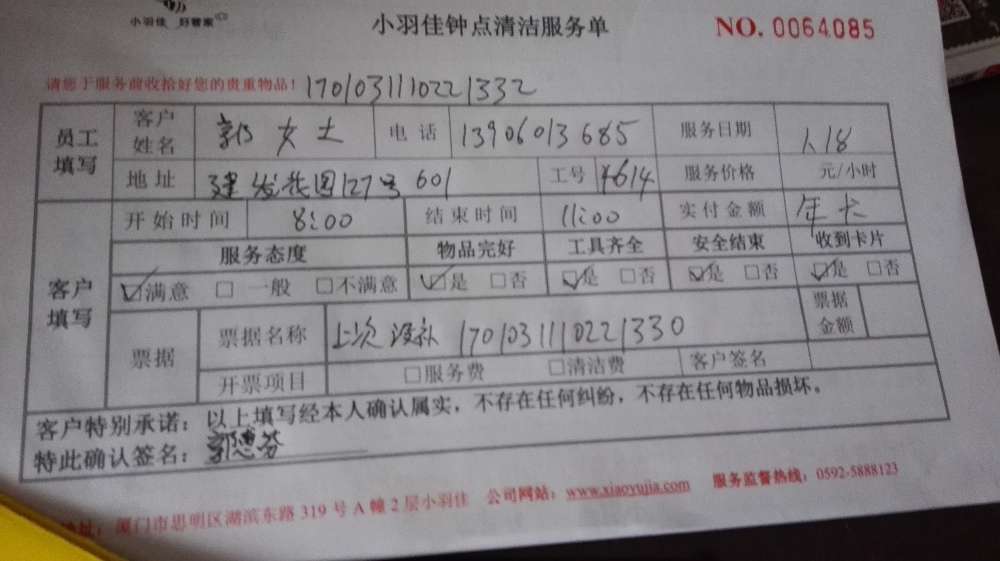 小羽佳 好管家
小羽佳钟点清洁服务单 NO. 0064085
请您于服务前收拾好您的贵重物品! 170103111022 1332
员工填写 客户姓名 郭女士 电话 13906013685 服务日期 1.18
地址 建发花园127号 601 工号 ¥614 服务价格 元/小时
客户填写 开始时间 8:00 结束时间 11:00 实付金额 年卡
服务态度 物品完好 工具齐全 安全结束 收到卡片
☑满意 □一般 □不满意 ☑是 □否 ☑是 □否 ☑是 □否 ☑是 □否
票据 票据名称 上次没补 170103111022 1330 票据金额
开票项目 □服务费 □清洁费 客户签名
客户特别承诺:以上填写经本人确认属实,不存在任何纠纷,不存在任何物品损坏。
特此确认签名:郭德芬
地址:厦门市思明区湖滨东路 319 号 A 幢 2 层小羽佳 公司网站:www.xiaoyujia.com 服务监督热线:0592-5888123